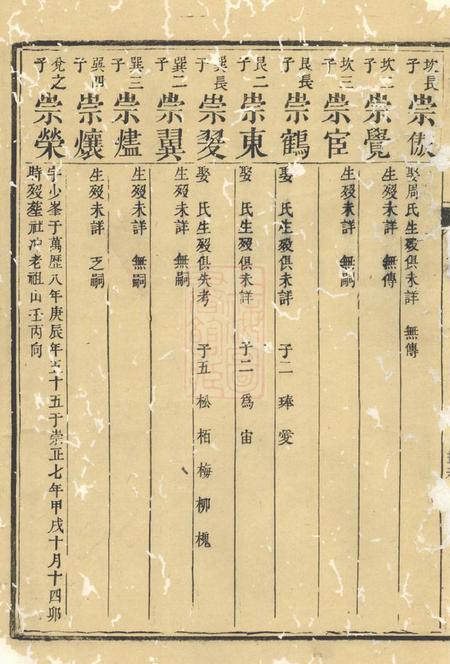 坎長子 崇 娶周氏生殁俱未詳 無傳
坎二子 崇覺 生殁未詳 無傳
坎三子 崇宦 生殁未詳 無嗣
艮長子 崇鶴 娶 氏生殁俱未詳 子二 琫 愛
艮二子 崇東 娶 氏生殁俱未詳 子二 為 宙
巽長子 崇翜 娶 氏生殁俱失考 子五 松 栢 梅 柳 槐
巽二子 崇翼 生殁未詳 無嗣
巽三子 崇爐 生殁未詳 無嗣
巽四子 崇爙 生殁未詳 乏嗣
兌之子 崇榮 字少峯于萬歷八年庚辰年 十五于崇正七年甲戌十月十四卯
時殁塟社冲老祖山壬丙向